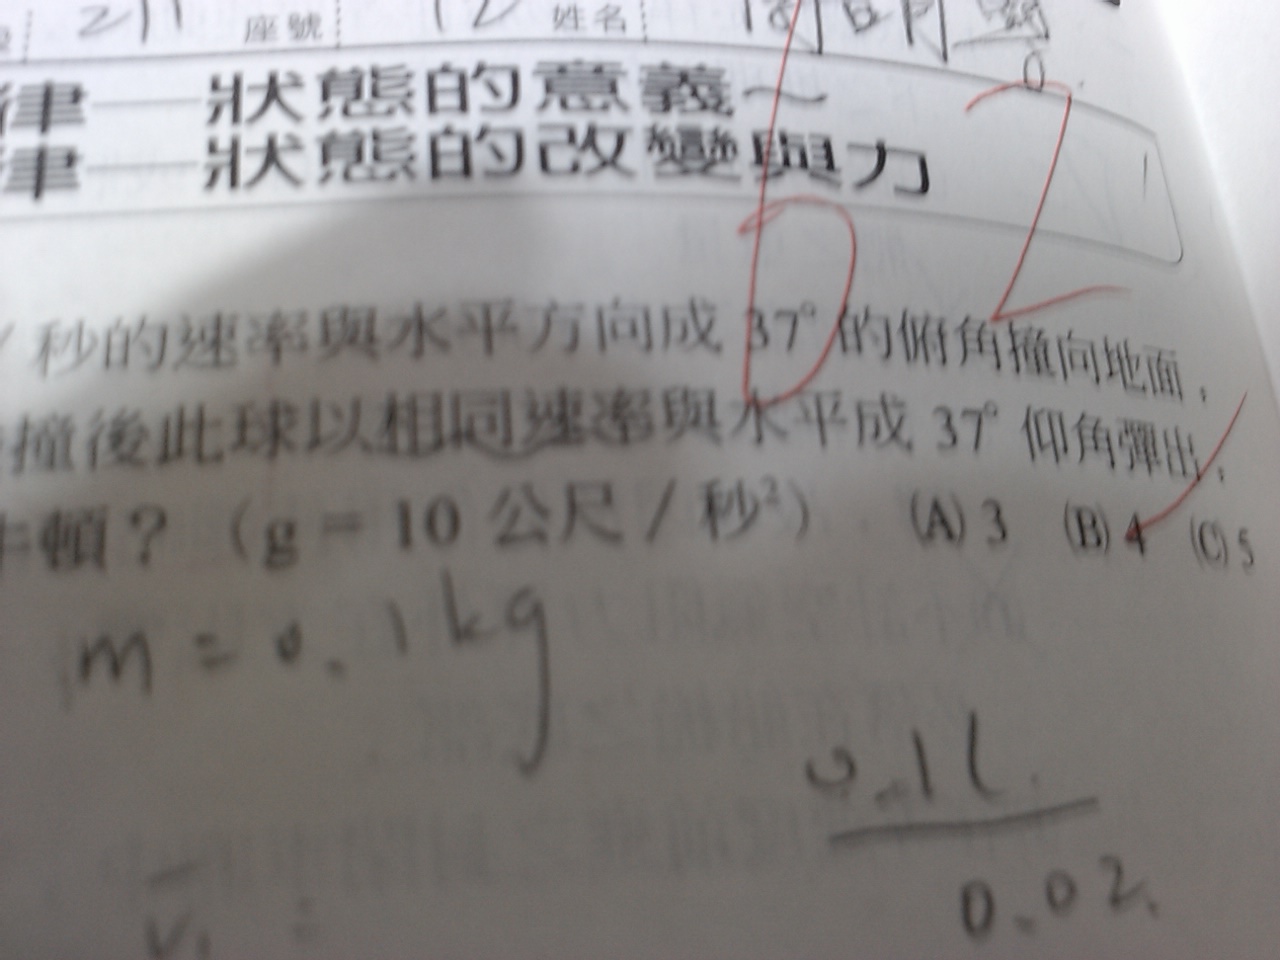 211 座號 12 姓名
律——狀態的意義～
律——狀態的改變與力
62
／秒的速率與水平方向成 37° 的俯角撞向地面，
撞後此球以相同速率與水平成 37° 仰角彈出，
牛頓？（g = 10 公尺／秒²） (A) 3 (B) 4 (C) 5
m = 0.1 kg
0.02